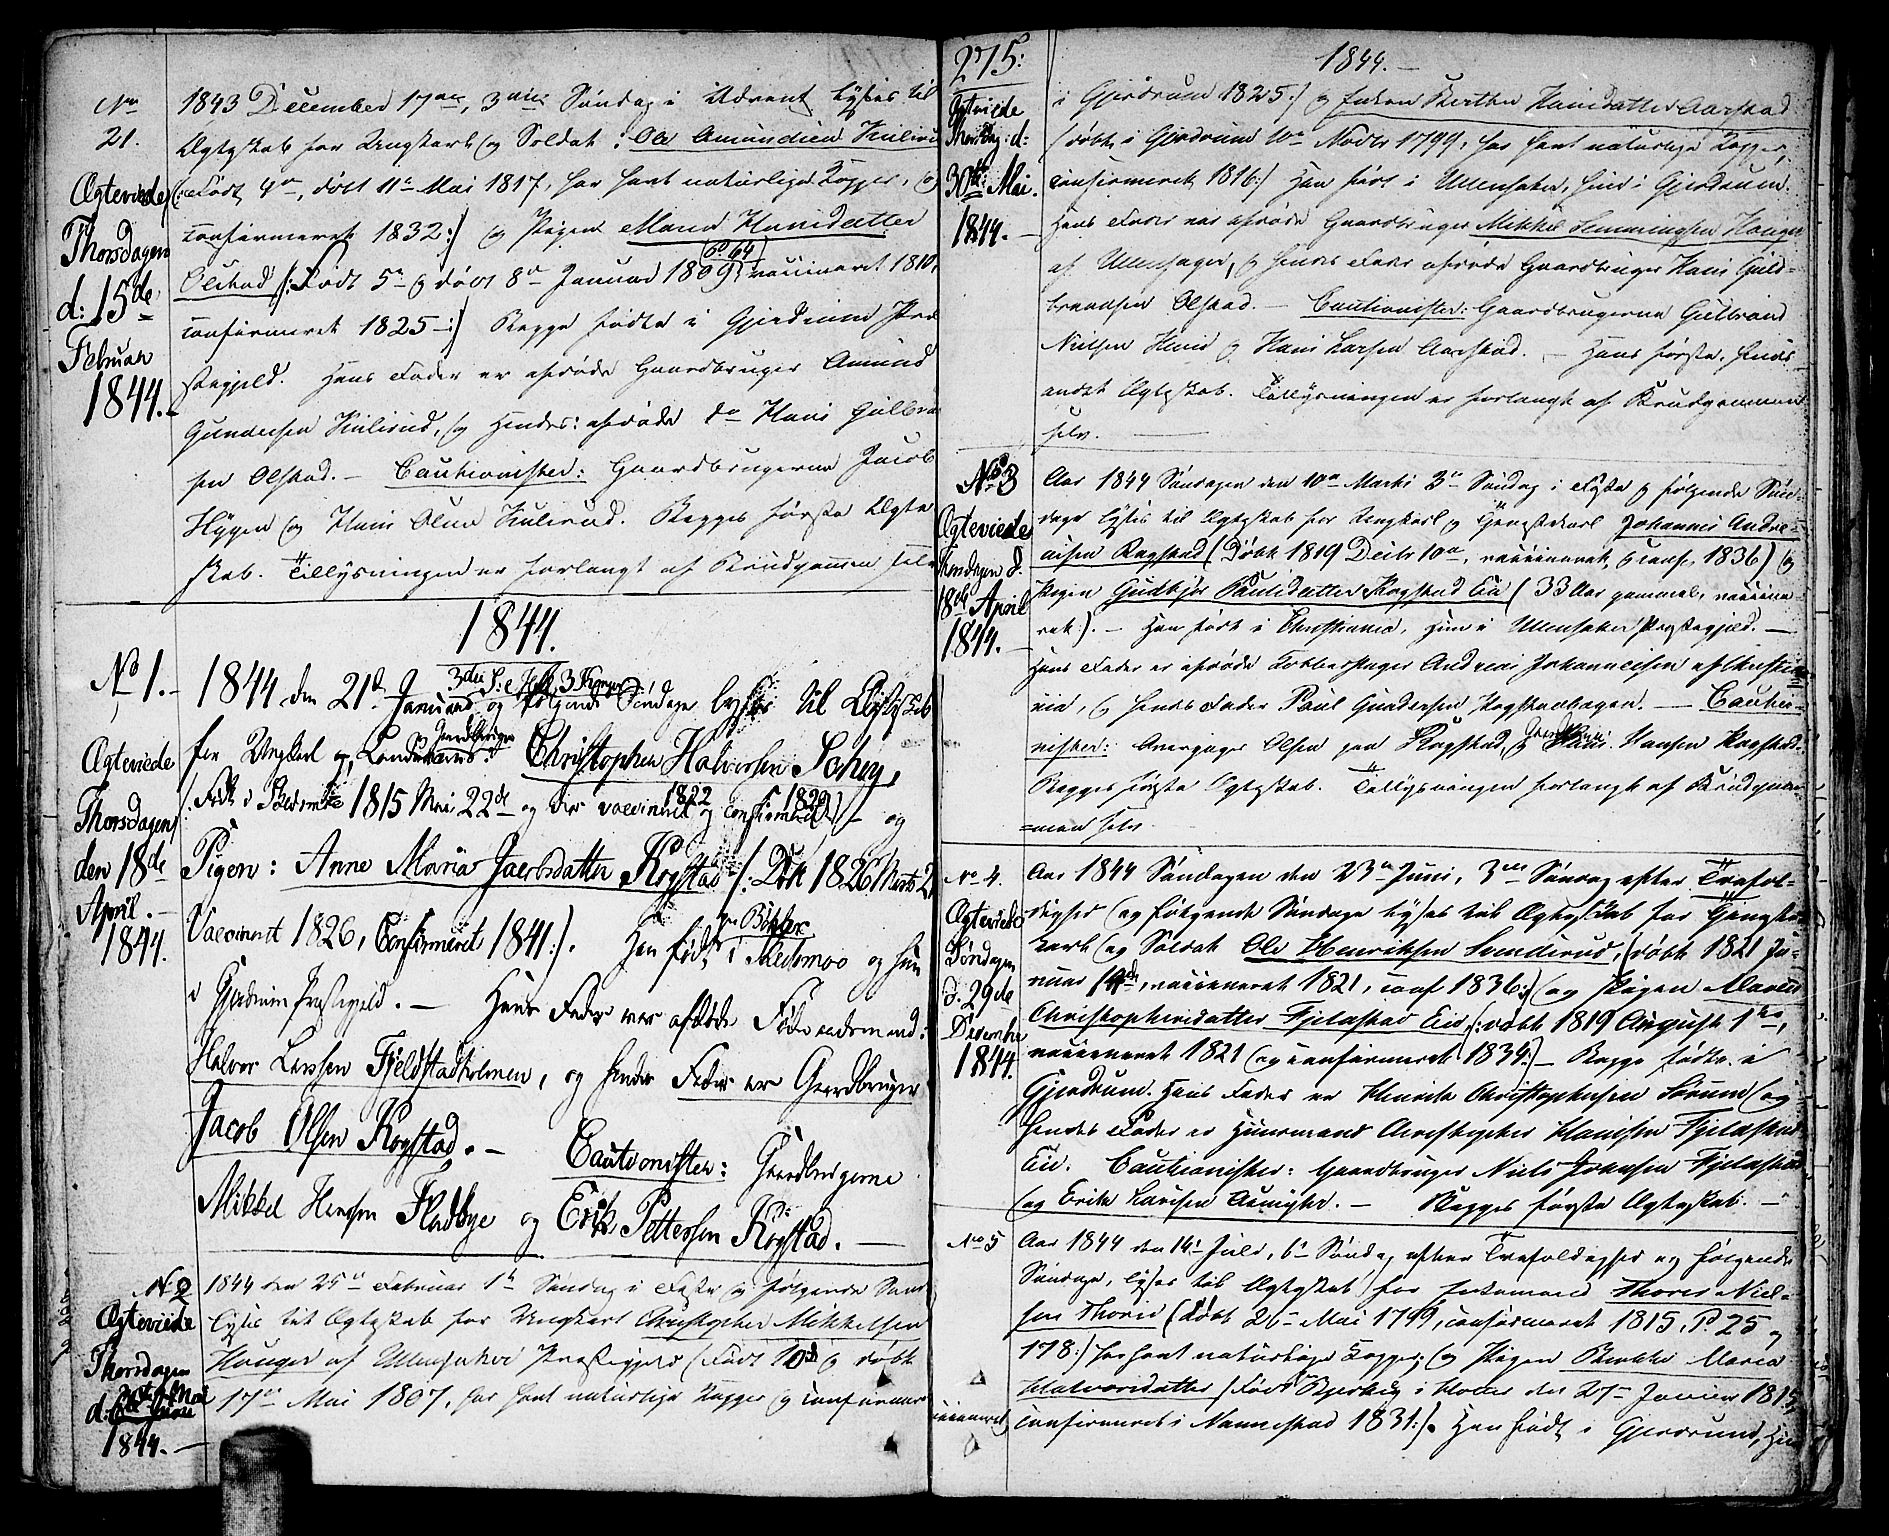 No
21.
Ægteviede
Thorsdagen
d: 15de
Februar
1844.
1843 December 17de, 3die Søndag i Advent lyses til
Ægteskab for Ungkarl og Soldat: Ole Amundsen Kulsrud
(: Født 4de, døbt 11te Mai 1817, har havt naturlige Kopper, og
confirmeret 1832:) og Pigen Maria Hansdatter
Olstad /: Født 5te og døbt 8de Januar 1809, vaccineret 1810,
confirmeret 1825 -:) Begge fødte i Gjerdrum Præ
stegjeld. Hans Fader er afdøde Gaardbruger Amund
Gundersen Kulsrud, og Hendes: afdøde do Hans Gulbrand
sen Olstad. - Cautionister: Gaardbrugerne Jacob
Hÿgen og Hans Olsen Kulsrud. Begges første Ægte
skab. Tillysningen er forlangt af Brudgommen selv
1844.
No 1. -
Ægteviede
Thorsdagen
den 18de
April. -
1844.
1844 den 21de Januar og følgende Søndage lyses til Ægteskab
for Ungkarl og Landværns: Christopher Halvorsen
/: Født i Skedsmoe 1815 Mai 22de og der vaccineret 1822 og confirmeret 1829 :/ - og
Pigen: Anne Maria Jacobsdatter Rogstad /: Døbt 1826 Marts 2
Vaccineret 1826, Confirmeret 1841:). Han født i Skedsmoe og hun
i Gjerdrum Præstegjeld. - Hans Fader var afdøde
Halvor Larsen Fjeldstadholmen, og hendes Fader er Gaardbruger
Jacob Olsen Rogstad. - Cautionister: Gaardbrugerne
Mikkel Hansen Fladbye og Erik Pettersen Rogstad. -
No 2
Ægteviede
Thorsdagen
d: 30te Mai
1844. -
1844 den 25de Februar 1ste Søndag i Faste og følgende Sønd
lyses til Ægteskab for Ungkarl Christopher Mikkelsen
Hauger af Ullensaker Præstegjeld (Født 10de og døbt
17de Mai 1807, har havt naturlige Kopper og confirmer
275:
1844. -
Ægteviede
Thorsdag d:
30te Mai.
1844. -
i Gjerdrum 1825:) og Enken Berthe Hansdatter Aarstad
(døbt i Gjerdrum 10de Novbr 1799, har havt naturlige Kopper,
confirmeret 1816:) Han født i Ullensaker, hun i Gjerdrum.
Hans Fader var afdøde Gaardbruger Mikkel Hemmingsen Hauger
af Ullensager, og hendes Fader afdøde Gaardbruger Hans Guld-
brandsen Olstad. - Cautionister: Gaardbrugerne Gulbrand
Nielsen Hval og Hans Larsen Aarstad. - Hans første, hendes
andet Ægteskab. Tillysningen er forlangt af Brudgommen
selv.
No 3
Ægteviede
Thorsdagen d.
18de April
1844. -
Aar 1844 Søndagen den 10de Marts 3de Søndag i Faste og følgende Søn-
dage lyses til Ægteskab for Ungkarl og Gangsterkarl Johannes Andre-
asen Rogstad (Døbt 1819 Decbr 10de, vaccineret, og conf. 1836) og
Pigen Gudbjør Paulsdatter Rogstad Eie (33 Aar gammel, vaccine-
ret:). - Han født i Christiania, Hun i Ullensaker Præstegjeld. -
Hans Fader er afdøde Andreas Johannesen af Christia-
nia, og hendes Fader Paul Gundersen Rogstadhagen. - Cautio-
nister: Olsen paa Rogstad, og Hans Hansen Rogstad.
Begges første Ægteskab. Tillysningen forlangt af Brudgom-
=men selv.
No 4.
Ægteviede
Søndagen
d. 29de
December
1844.
Aar 1844 Søndagen den 23de Juni, 3die Søndag efter Trefol-
dighed og følgende Søndage lyses til Ægteskab for Gangster
karl og Soldat Ole Henriksen Svenderud, (døbt 1821 Ja-
nuar 14de, vaccineret 1821, conf 1836:) og Pigen Maren
Christophersdatter Fjelstad Eie, (:døbt 1819 August 1ste,
vaccineret 1821 og confirmeret 1834:) - Begge fødte i
Gjerdrum. Hans Fader er Henrik Christophersen Sørum og
hendes Fader er Huusmand Christopher Hansen Fjelstad
Eie. Cautionister: Gaardbruger Niels Johnsen Fjelstad
og Erik Larsen. - Begges første Ægteskab. -
No 5
Aar 1844 den 14de Juli, 6te Søndag efter Trefoldighed og følgende
Søndage, lyses til Ægteskab for Enkemand Thores Niel-
sen Thorud (døbt 26de Mai 1799, confirmeret 1815, P. 25 og
178:) har havt naturlige Kopper; og Pigen Birthe Maria
Halvorsdatter /Født i Holter den 27de Januar 1815,
vaccineret, confirmeret i Nannestad 1831:). Han født i Gjerdrum, Hun